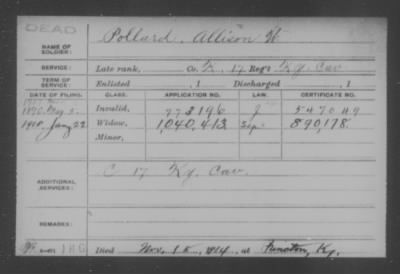 DEAD
NAME OF SOLDIER: Pollard, Allison W
SERVICE: Late rank, Co. K, 17 Reg't Ky Cav
TERM OF SERVICE: Enlisted , 1 Discharged , 1
DATE OF FILING. CLASS. APPLICATION NO. LAW. CERTIFICATE NO.
Invalid, 773196 J 547049
Jany 22 Widow, 1,040,413 890,178
Minor,
ADDITIONAL SERVICES: C 17 Ky. Cav.
REMARKS:
Died Nov. 15, 1914, at Ky.